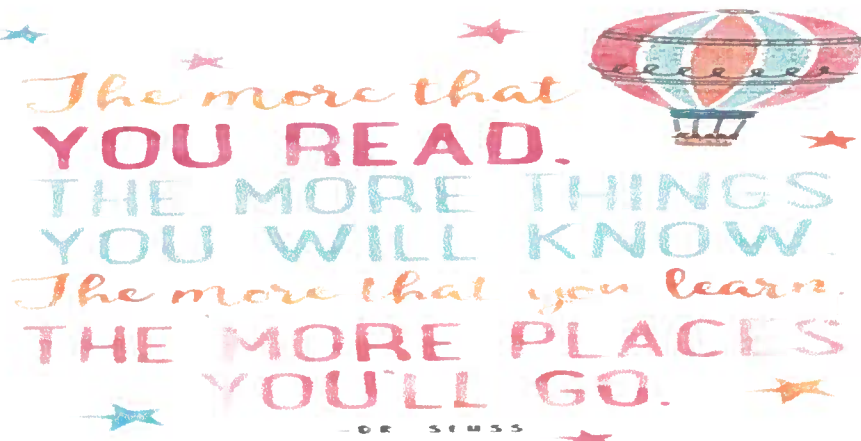 The more that
YOU READ.
THE MORE THINGS
YOU WILL KNOW.
The more that you learn.
THE MORE PLACES
YOU'LL GO.
-DR SEUSS